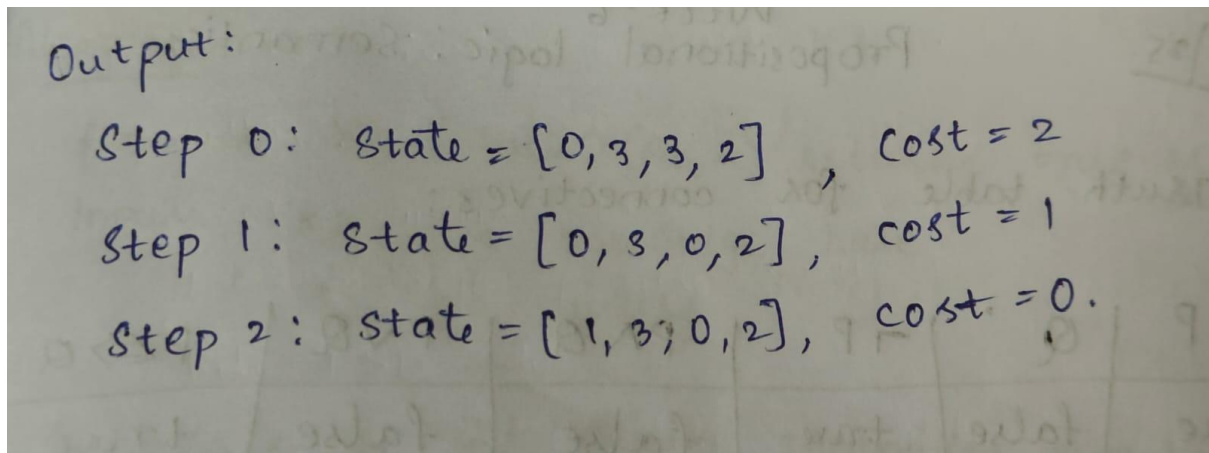 Output:
Step 0: State = [0, 3, 3, 2] , cost = 2
Step 1: State = [0, 3, 0, 2] , cost = 1
Step 2: State = [1, 3, 0, 2], cost = 0.